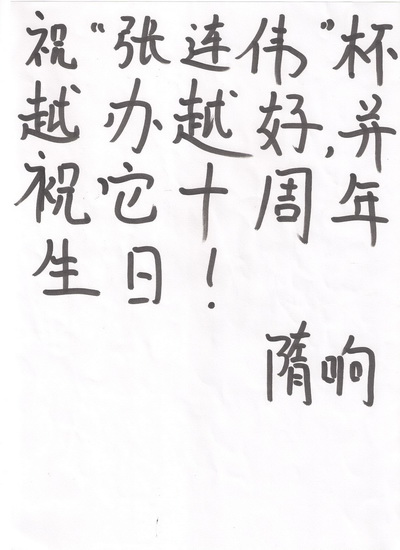 祝“张连伟”杯
越办越好,并
祝它十周年
生日!
隋响